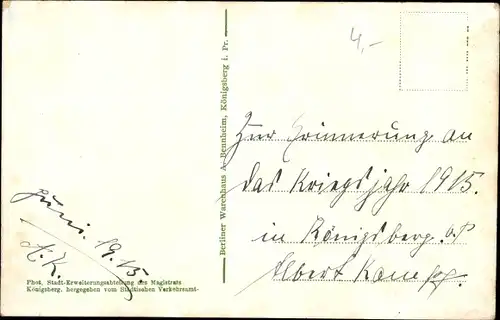 4,-
Berliner Warenhaus A. Bennheim, Königsberg i. Pr.
Zur Erinnerung an
das Kriegsjahr 1915.
in Königsberg. o/P
Albert Kampf.
Juni. 1915
A.K.
Phot. Stadt-Erweiterungsabteilung des Magistrats
Königsberg, hergegeben vom Städtischen Verkehrsamt-